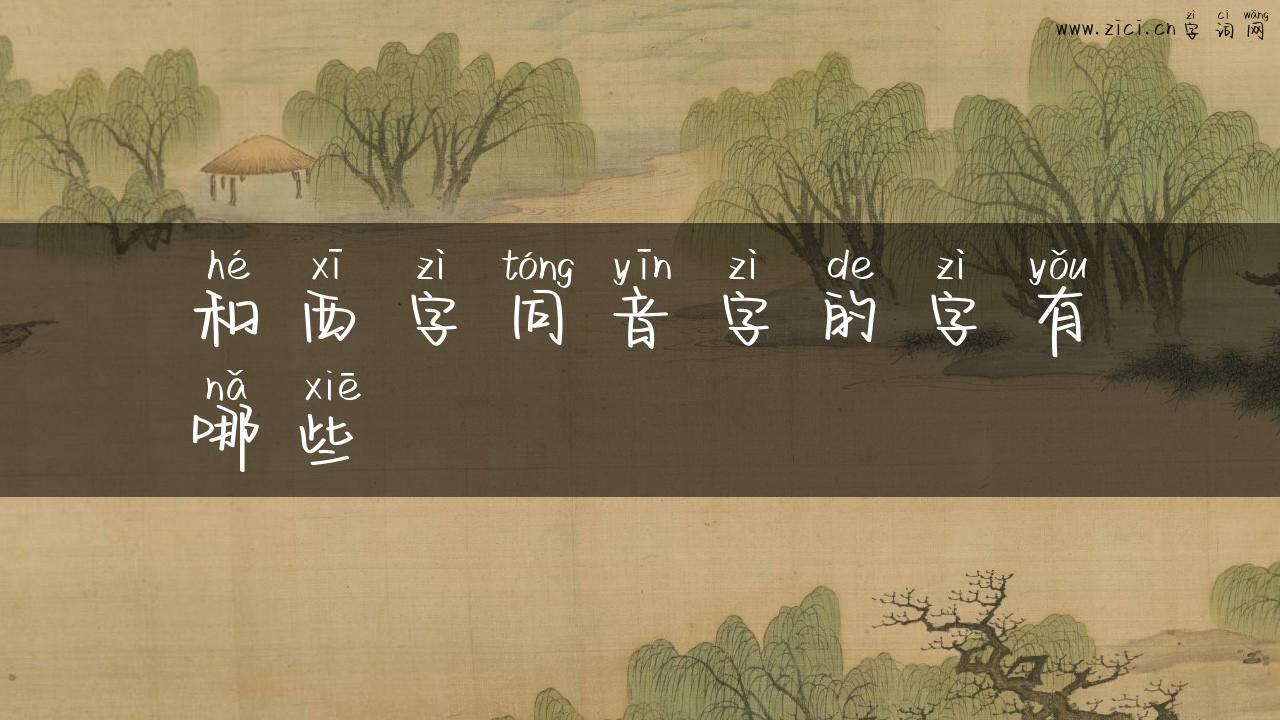 zì cí wǎng
www.zici.cn 字词网
hé xī zì tóng yīn zì de zì yǒu
和西字同音字的字有
nǎ xiē
哪些